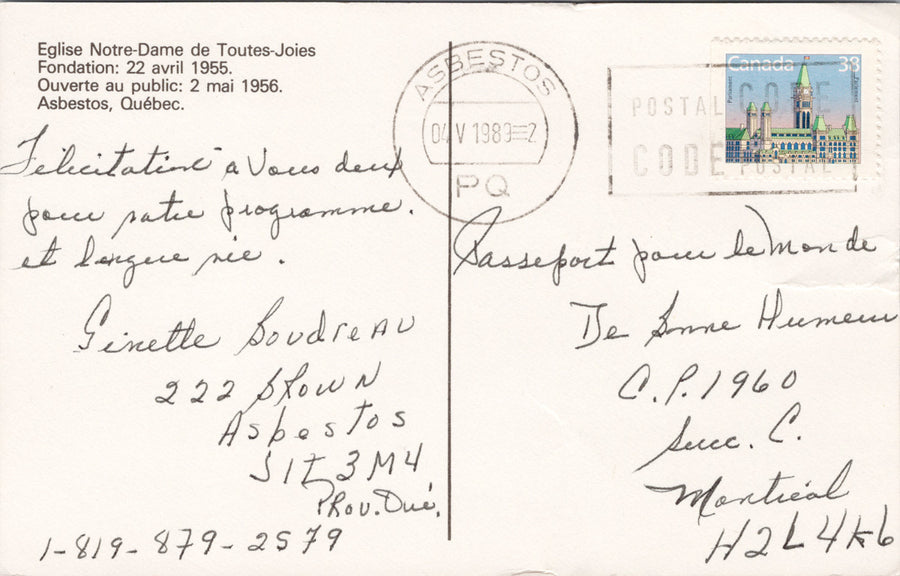 Eglise Notre-Dame de Toutes-Joies
Fondation: 22 avril 1955.
Ouverte au public: 2 mai 1956.
Asbestos, Québec.
Félicitation à Vous deux
pour votre programme.
et longue vie.
Ginette Boudreau
222 Brown
Asbestos
J1T 3M4
Prov. Qué.
1-819-879-2579
ASBESTOS
04 V 1989 2
PQ
POSTAL CODE
CODE POSTAL
Canada 38
Parliament
Parlement
Passeport pour le Monde
De Bonne Humeur
C.P. 1960
Succ. C.
Montréal
H2L 4K6